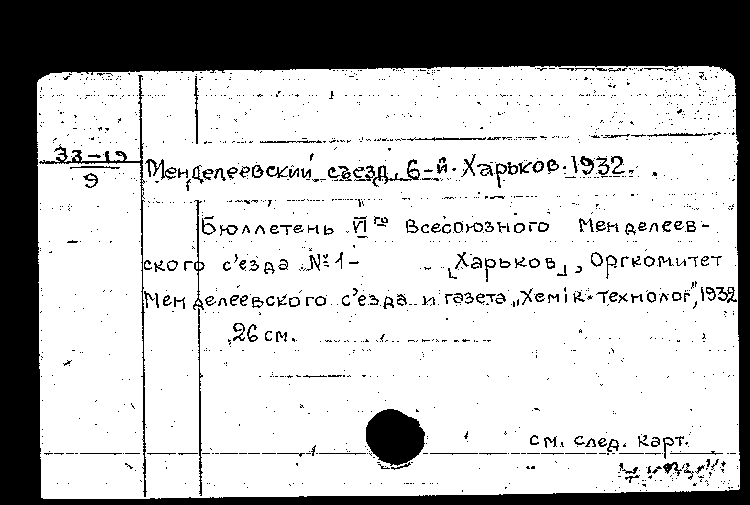 33-19
9
Менделеевский съезд, 6-й. Харьков. 1932.
Бюллетень VI го Всесоюзного Менделеев-
ского с'езда №1- [Харьков], Оргкомитет
Менделеевского с'езда и газета „Хемік-технолог", 1932
26 см.
см. след. карт.